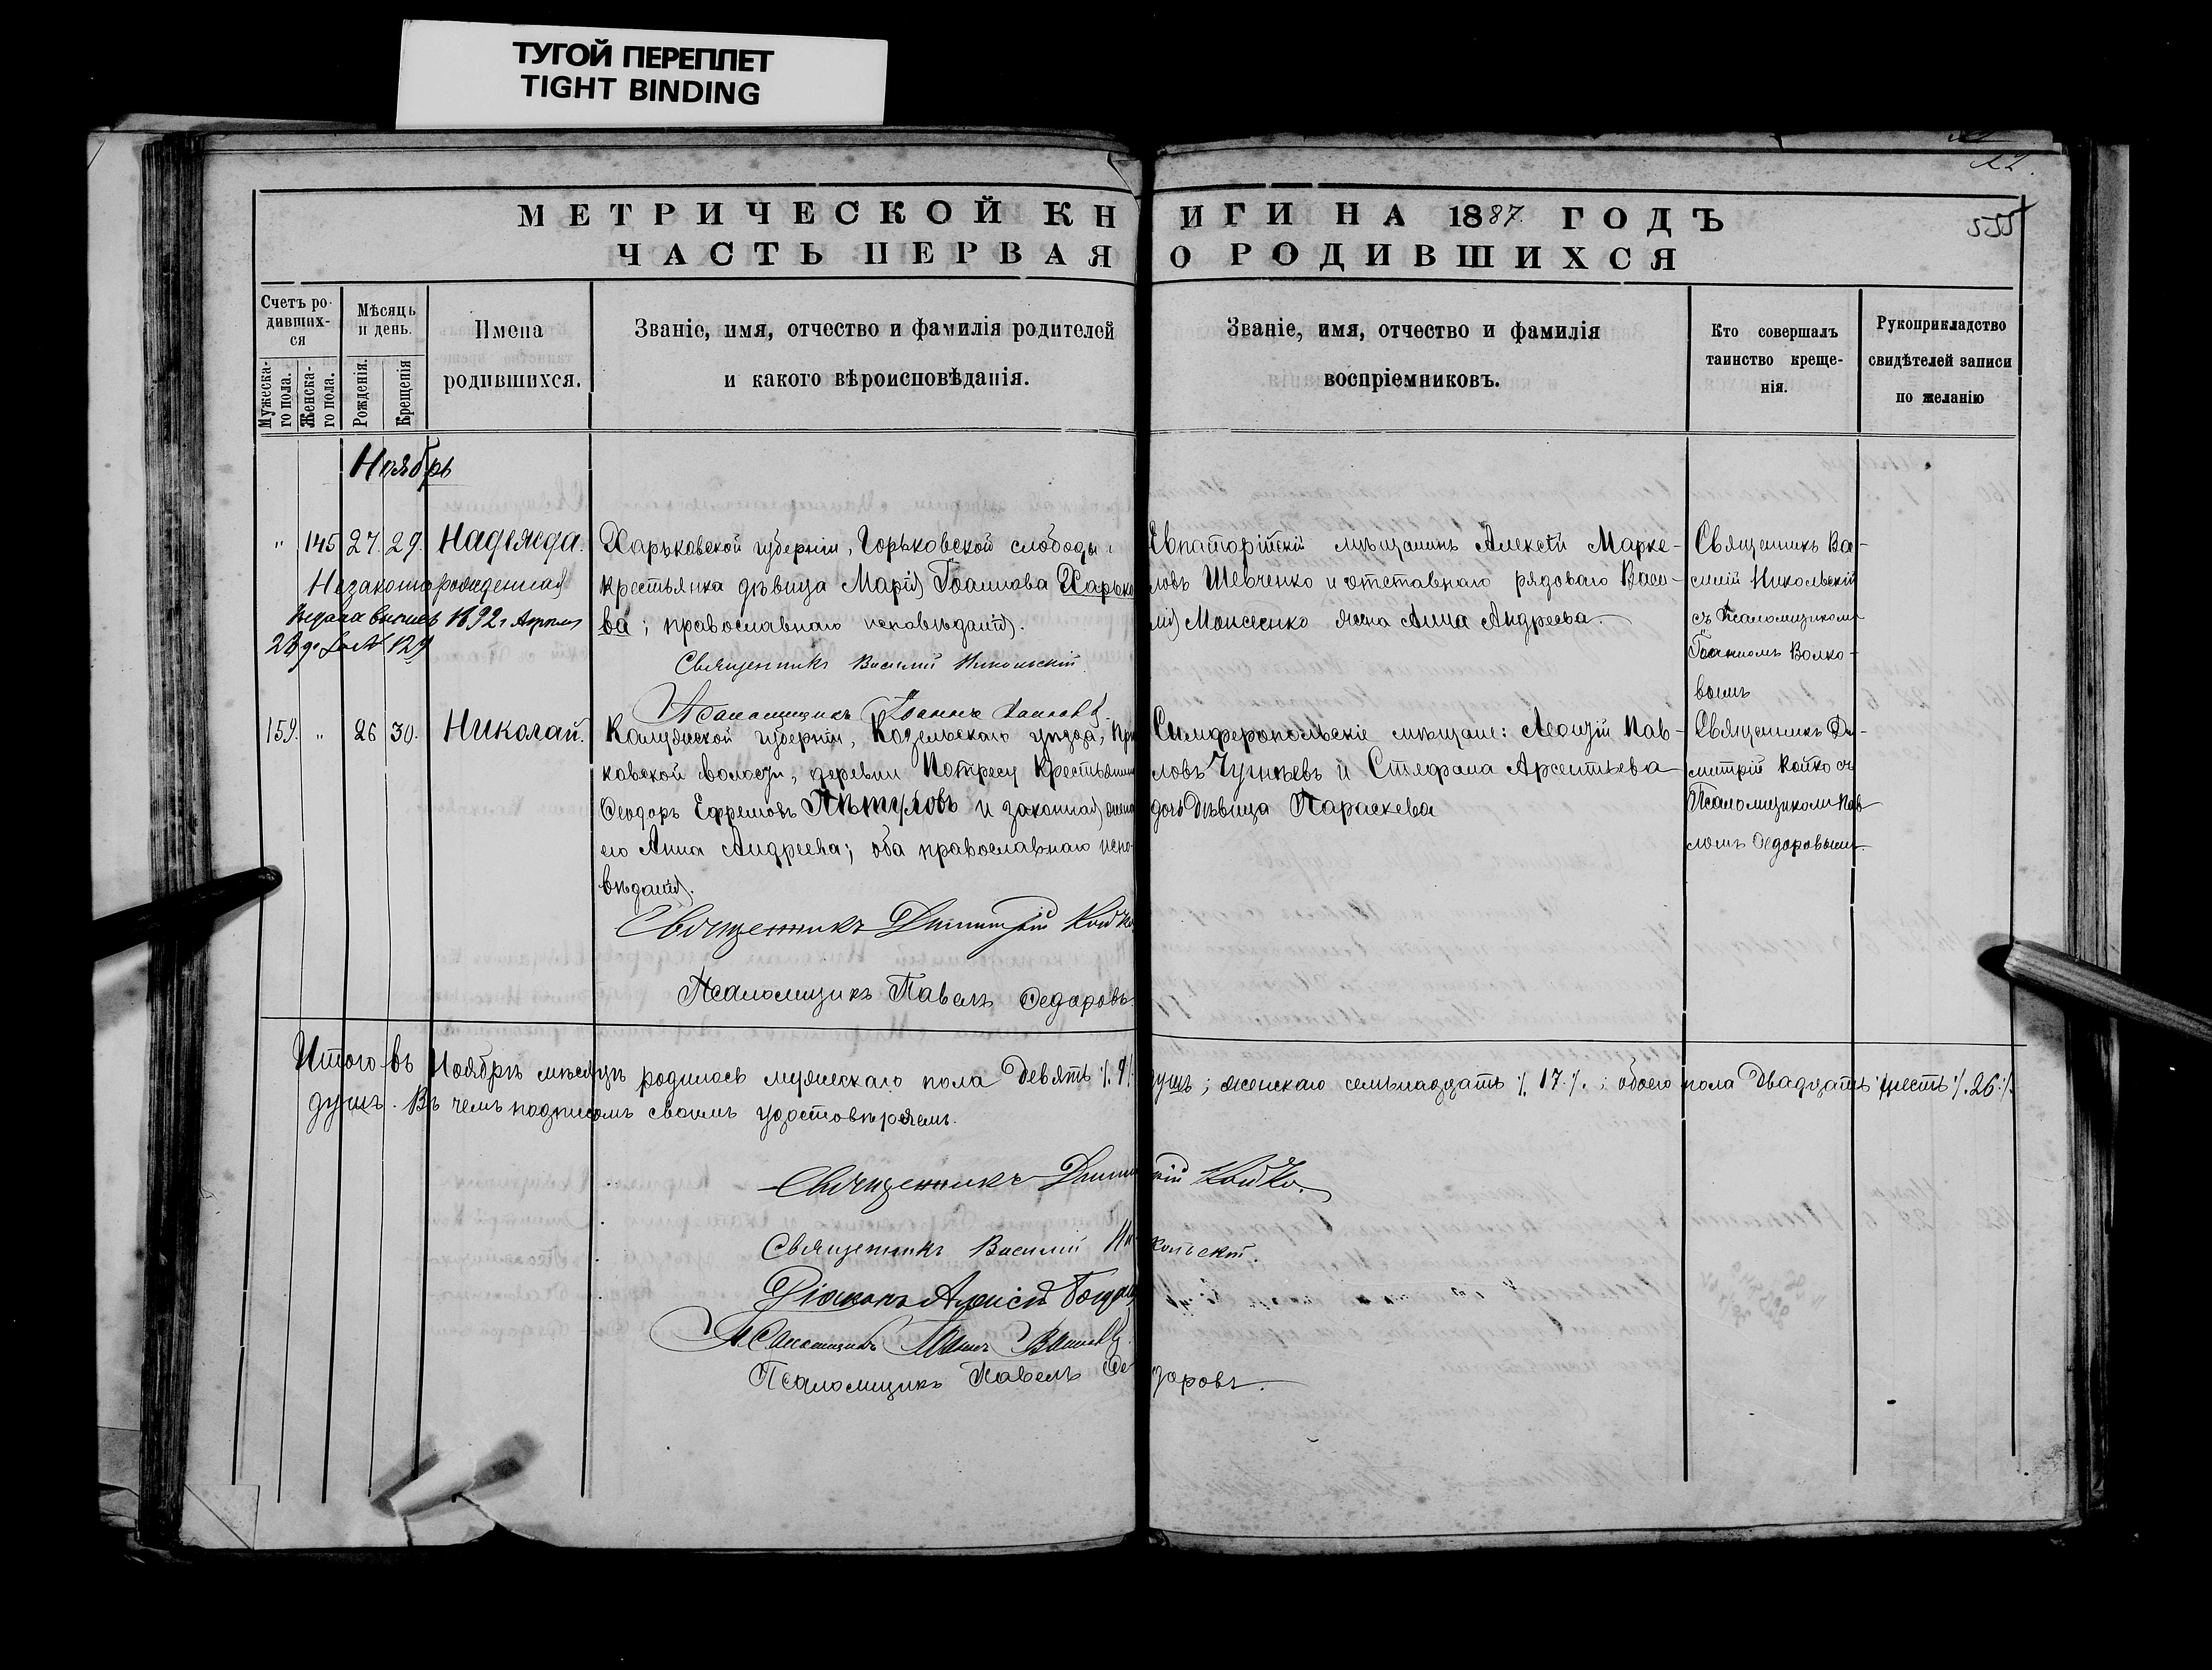 ТУГОЙ ПЕРЕПЛЕТ
TIGHT BINDING
22.
МЕТРИЧЕСКОЙ КНИГИ НА 1887. ГОДЪ
555
ЧАСТЬ ПЕРВАЯ О РОДИВШИХСЯ
Счетъ ро-
дивших-
ся
Мужеска-
го пола.
Женска-
го пола.
Мѣсяць
и день.
Рожденія.
Крещенія
Имена
родившихся.
Званіе, имя, отчество и фамилія родителей
и какого вѣроисповѣданія.
Званіе, имя, отчество и фамилія
воспріемниковъ.
Кто совершалъ
таинство креще-
нія.
Рукоприкладство
свидѣтелей записи
по желанію
Ноябрь
" 145 27. 29. Надежда.
Незаконнорожденная
1892 г. Апреля
28 д. за № 129
Харьковской губерніи, Горьковской слободы
крестьянка дѣвица Марія Іоаннова Харько
ва; православнаго исповѣданія.
Священникъ Василій Никольскій
Псаломщикъ Іоаннъ
Евпаторійскій мѣщанинъ Алексѣй Марке-
ловъ Шевченко и отставнаго рядоваго Васи-
лія Моисеенко жена Анна Андреева.
Священникъ Ва-
силій Никольскій
съ Псаломщикомъ
Іоанномъ Волко-
вымъ
159. " 26 30. Николай.
Калужской губерніи, Козельскаго уѣзда,
ковской волости, деревни крестьянинъ
Ѳеодоръ Ефремовъ Пѣтуховъ и законная жена
его Анна Андреева; оба православнаго испо-
вѣданія.
Священникъ Димитрій Койко
Псаломщикъ Павелъ Ѳедоровъ.
Симферопольскіе мѣщане: Леонтій Пав-
ловъ и Стефана Арсентьева
дочь дѣвица Параскева
Священникъ Ди-
митрій Койко съ
Псаломщикомъ Пав-
ломъ Ѳедоровымъ.
Итого въ Ноябрѣ мѣсяцѣ родилось мужескаго пола девять /.9/. душъ; женскаго семьнадцать /.17./.; обоего пола двадцать шесть /.26./.
душъ. Въ чемъ подписомъ своимъ удостовѣряемъ.
Священникъ Димитрій Койко.
Священникъ Василій Никольскій.
Діаконъ
Псаломщикъ Іоаннъ
Псаломщикъ Павелъ Ѳедоровъ.